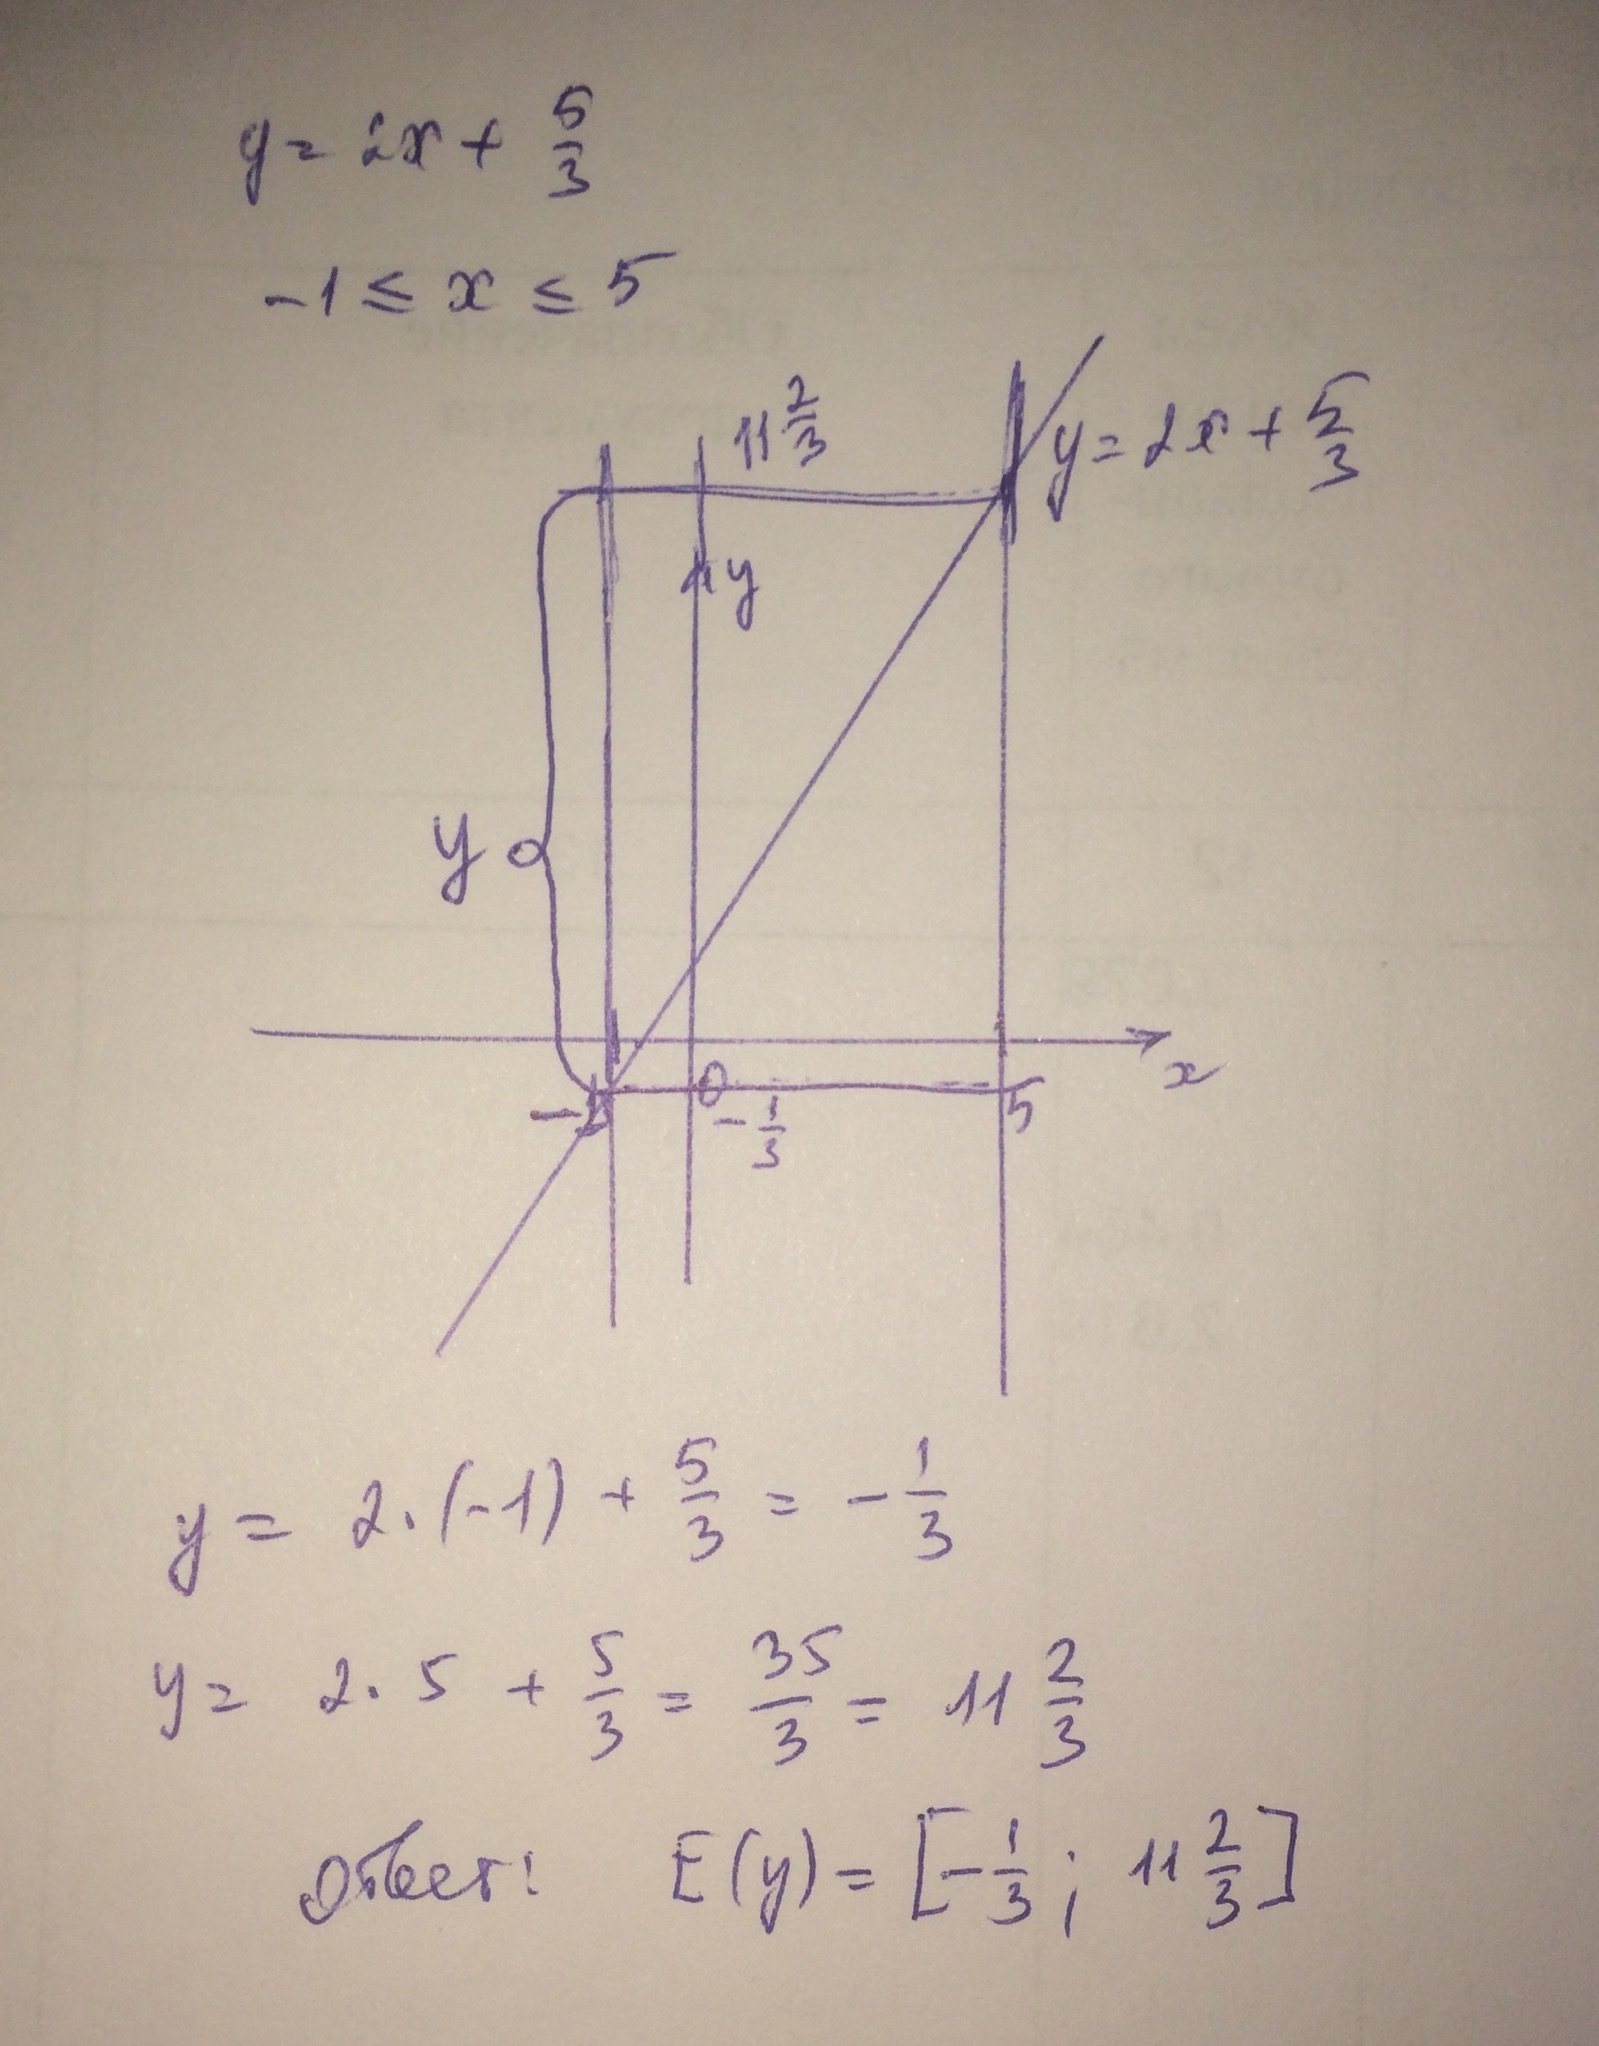 y = 2x + 5/3
-1 ≤ x ≤ 5
11 2/3
y = 2x + 5/3
y
y
x
-1
0
5
-1/3
y = 2·(-1) + 5/3 = -1/3
y = 2·5 + 5/3 = 35/3 = 11 2/3
Ответ: E(y) = [-1/3; 11 2/3]